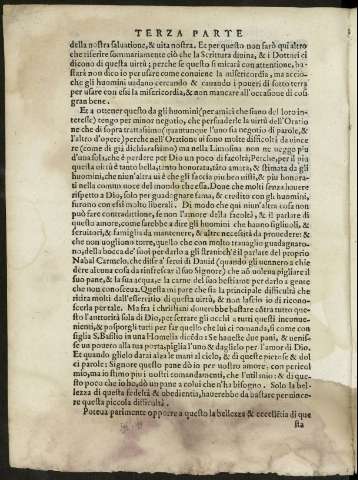 TERZA PARTE
della nostra saluatione, & uita nostra. Et per questo non farò qui altro
che riferire sommariamente ciò che la Scrittura diuina, & i Dottori ci
dicono di questa uirtù; perche se questo si mirarà con attentione, ba-
starà non dico io per usare come conuiene la misericordia, ma accio-
che gli huomini uadano cercando & cauando i poueri di sotto terra
per usare con essi la misericordia, & non mancare all'occasione di cosi
gran bene.
Et a ottener questo da gli huomini (per amici che siano del loro in-
teresse) tengo per minor negotio, che persuaderle la uirtù dell'Oratio
ne che di sopra trattassimo (quantunque l'uno sia negotio di parole, &
l'altro d'opere) perche nell'Oratione ui sono molte difficoltà da uince
re (come di già dichiarassimo) ma nella Limosina non ne ueggo più
d'una sola, che è perdere per Dio un poco di facoltà; Perche, per il più
questa uirtù è tanto bella, tanto honorata, tāto amata, & stimata da gli
huomini, che niun'altra ui è che gli faccia più ben uisti, & più honora-
ti nella commune uoce del mondo che essa. Doue che molti senza hauere
rispetto a Dio, solo per guadagnar fama, & credito con gli huomini,
furono con essi molto liberali. Di modo che qui niun'altra cosa non
può fare contradittione, se non l'amore della facoltà, & il parlare di
questo amore, come sarebbe a dire gli huomini che hanno figliuoli, &
seruitori, & famiglia da mantenere, & altre necessità da prouedere: &
che non uogliono torre, quello che con molto trauaglio guadagnaro-
no, della bocca de' suoi per darlo a gli stranieri: è il parlare del proprio
Nabal Carmelo, che disse a' serui di Dauid (quando gli uennero a chie
dere alcuna cosa da rinfrescar il suo Signore) che nō uoleua pigliare il
suo pane, & la sua acqua, e la carne del suo bestiame per darlo a gente
che non conosceua. Questa mi pare che sia la principale difficoltà che
ritira molti dall'essercitio di questa uirtù, & non lascio io di ricono-
scerla per tale. Ma fra i christiani douerebbe bastare cōtra tutto que-
sto l'autorità sola di Dio, per serrare gli occhi a tutti questi inconue-
nienti, & posporgli tutti per far quello che lui ci comanda, si come con
figlia S. Basilio in una Homelia dicēdo: Se haueste due pani, & uenis-
se un pouero alla tua porta, piglia l'uno & daglielo per amor di Dio.
Et quando glielo darai alza le mani al cielo, & di queste pietose & dol
ci parole: Signore questo pane dò io per uostro amore, con pericol
mio, ma io stimo più i uostri comandamenti, che l'util mio: & di que-
sto poco che io ho, dò un pane a colui che n'ha bisogno. Solo la bel-
lezza di questa fedeltà & obedientia, hauerebbe da bastare per uince-
re questa piccola difficoltà.
Poteua parimente opporre a questo la bellezza & eccellētia di que
sta